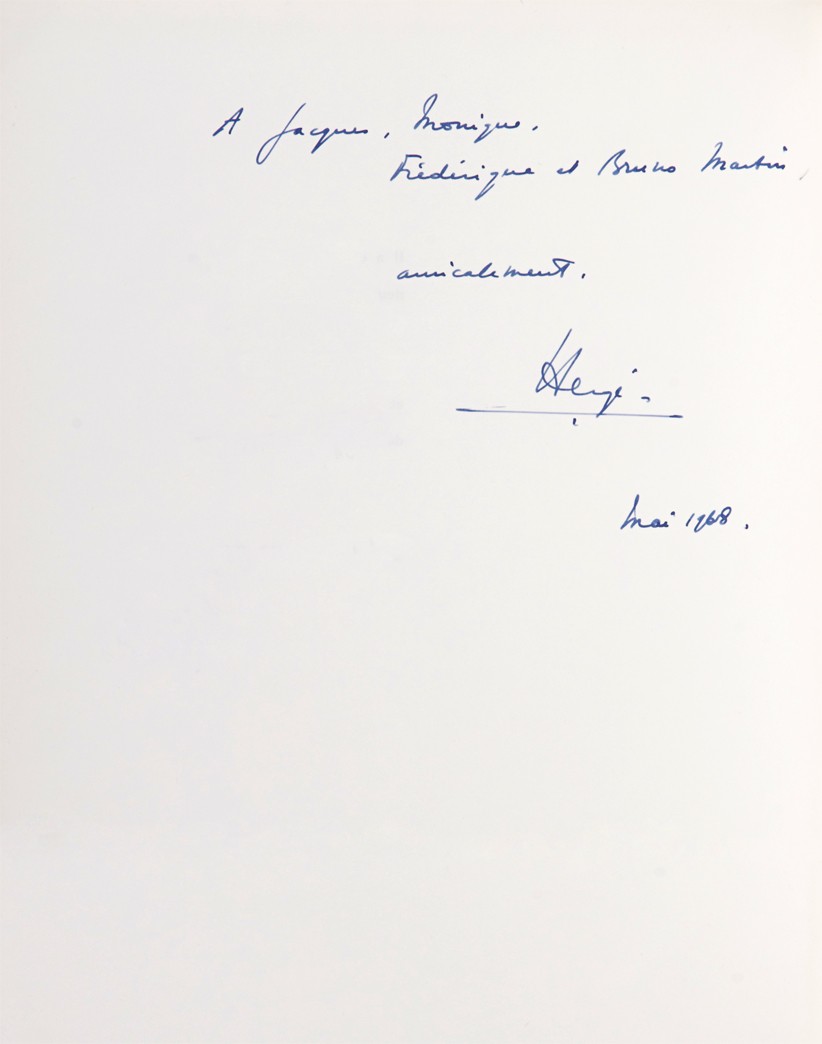 A Jacques, Monique,
Frédérique et Bruno Martin,
amicalement.
Hergé
Mai 1968.